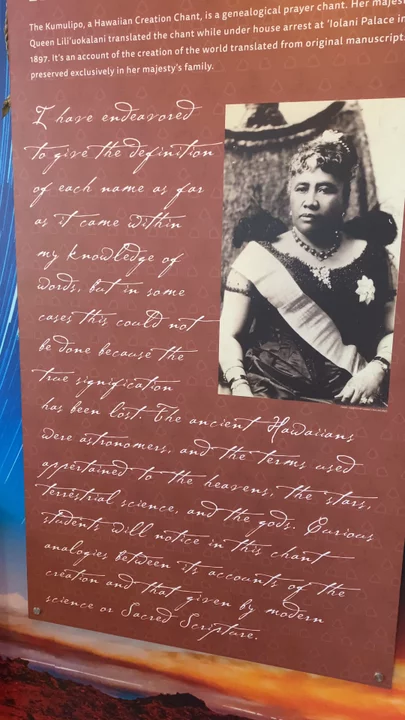 The Kumulipo, a Hawaiian Creation Chant, is a genealogical prayer chant. Her majes
Queen Lili'uokalani translated the chant while under house arrest at 'Iolani Palace in
1897. It's an account of the creation of the world translated from original manuscript
preserved exclusively in her majesty's family.
I have endeavored
to give the definition
of each name as far
as it came within
my knowledge of
words, but in some
cases this could not
be done because the
true signification
has been lost. The ancient Hawaiians
were astronomers, and the terms used
appertained to the heavens, the stars,
terrestrial science, and the gods. Curious
students will notice in this chant
analogies between its accounts of the
creation and that given by modern
science or Sacred Scripture.